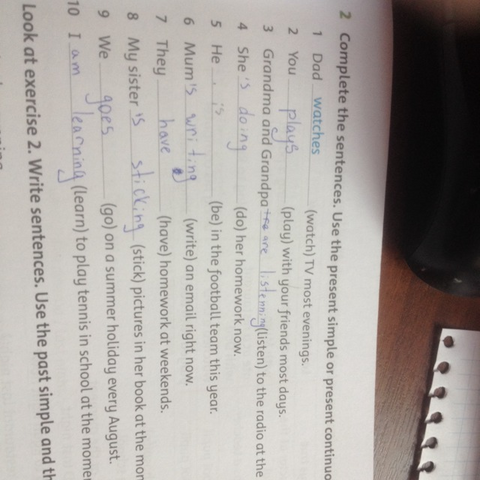 2 Complete the sentences. Use the present simple or present continuo
1 Dad watches (watch) TV most evenings.
2 You plays (play) with your friends most days.
3 Grandma and Grandpa are listenning (listen) to the radio at the
4 She 's doing (do) her homework now.
5 He is (be) in the football team this year.
6 Mum 's writing (write) an email right now.
7 They have (have) homework at weekends.
8 My sister 's sticking (stick) pictures in her book at the mom
9 We goes (go) on a summer holiday every August.
10 I am learning (learn) to play tennis in school at the momen
Look at exercise 2. Write sentences. Use the past simple and th